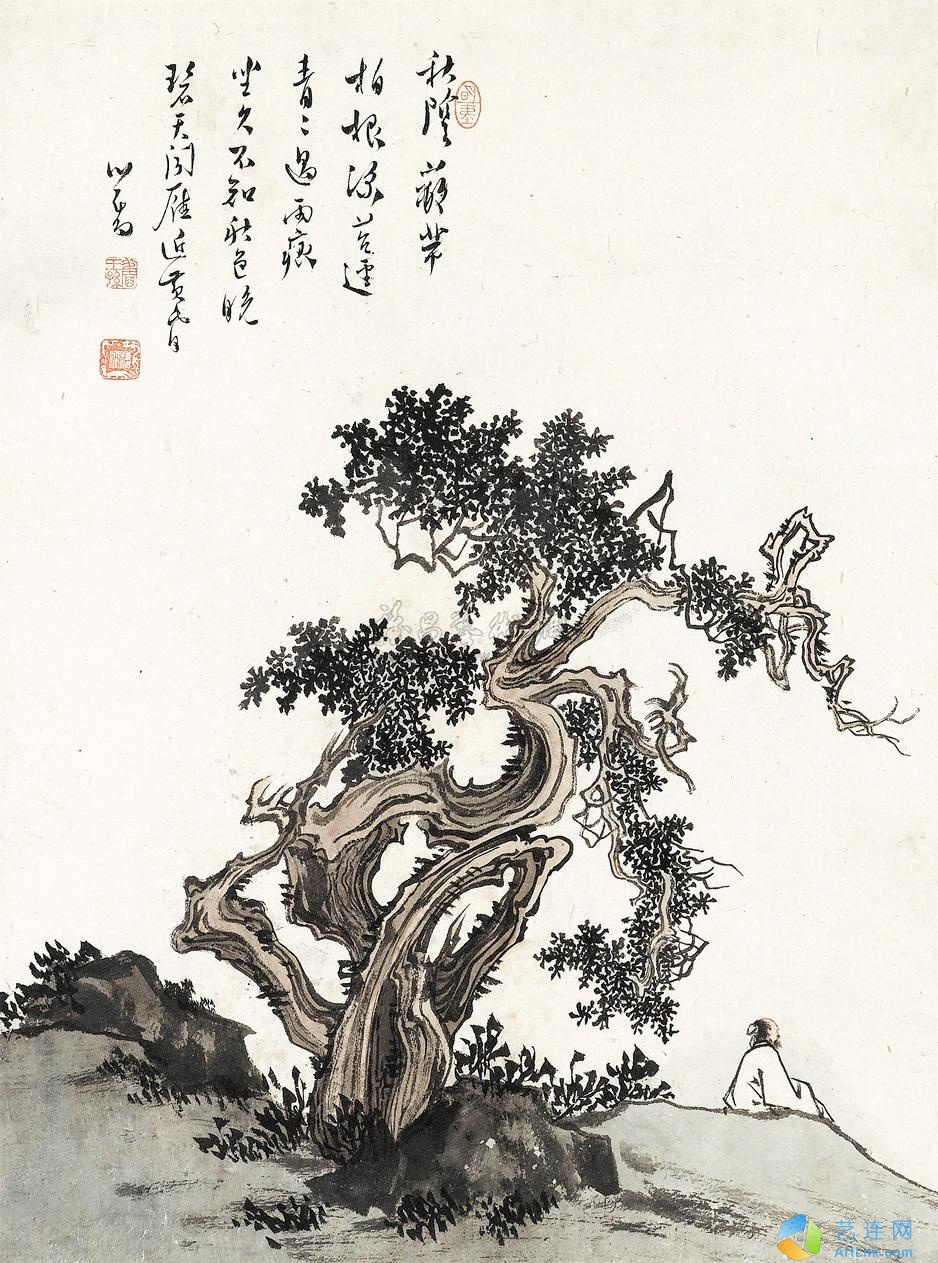 秋陰蔽芾
柏根深苔逕
青々過雨痕
坐久不知秋色晚
碧天聞雁近黃昏
心畬
舊王孫
艺连网
ArtLnk.com